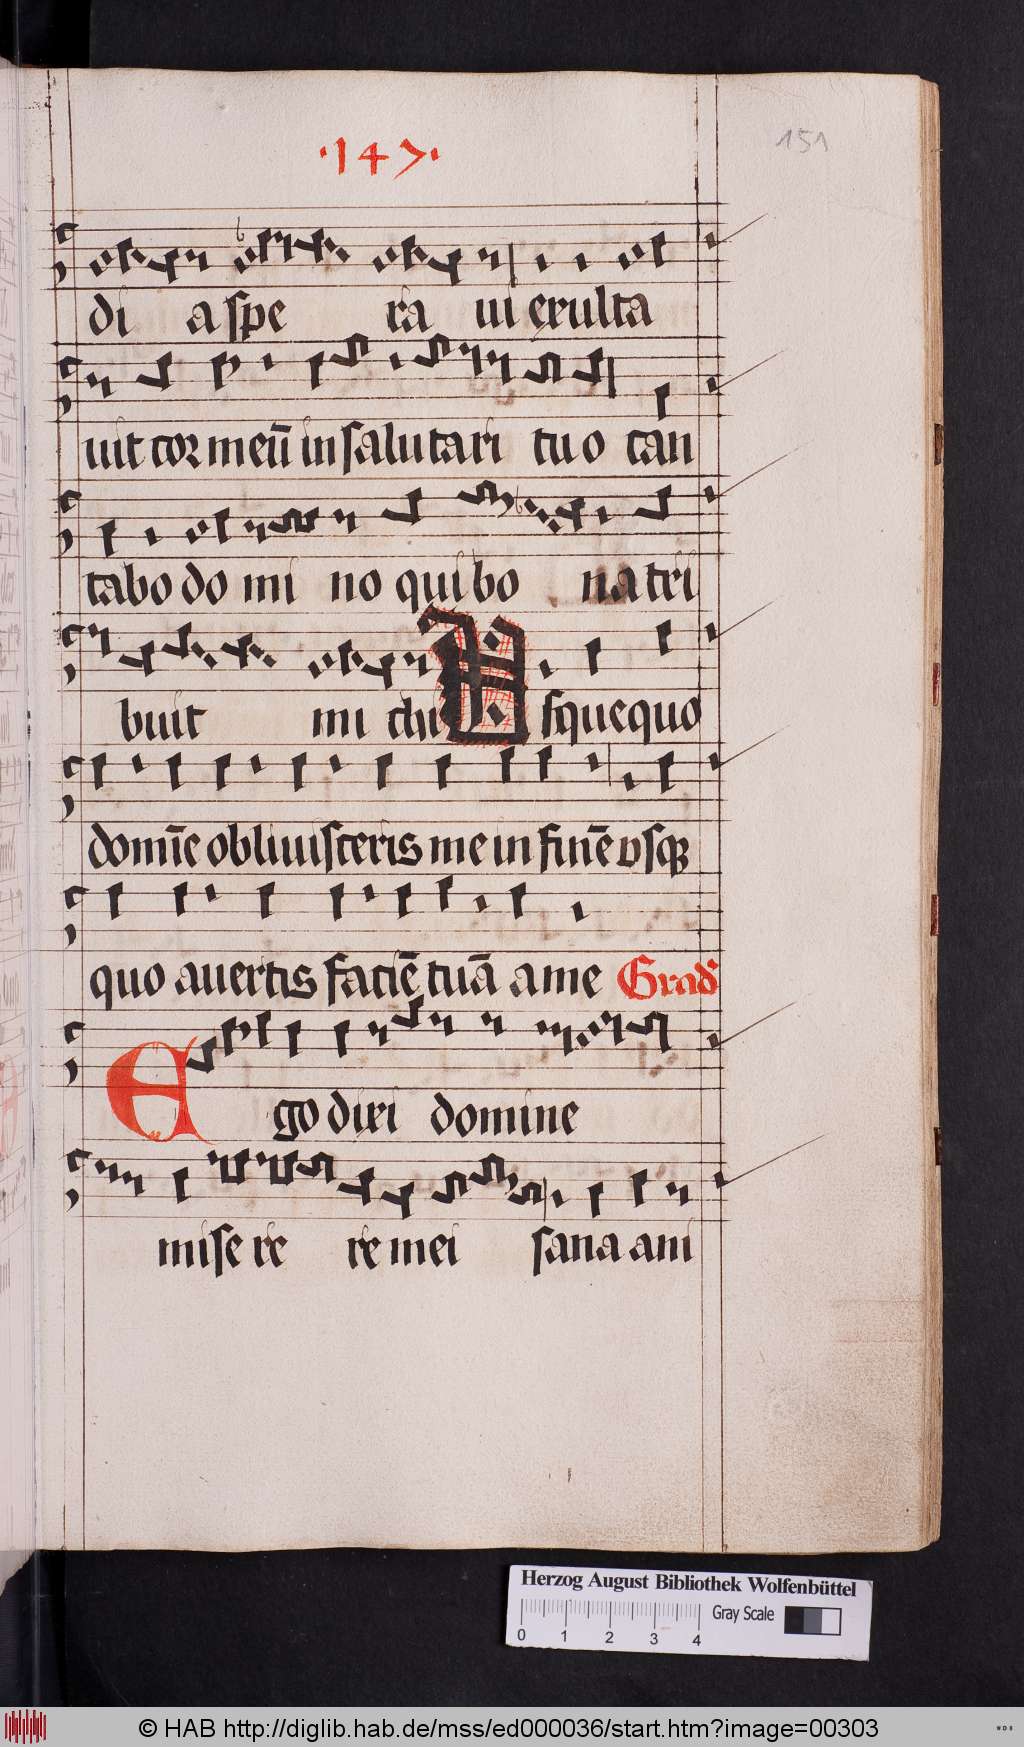 ·147·
151
di a spe ra ui exulta
uit cor meū in salutari tuo can
tabo domino qui bona tri
buit michi Vsquequo
domīe obliuisceris me in finē vsq
quo auertis faciē tuā a me Grad'
Ego dixi domine
misere re mei sana ani
Herzog August Bibliothek Wolfenbüttel
Gray Scale
0 1 2 3 4
© HAB http://diglib.hab.de/mss/ed000036/start.htm?image=00303